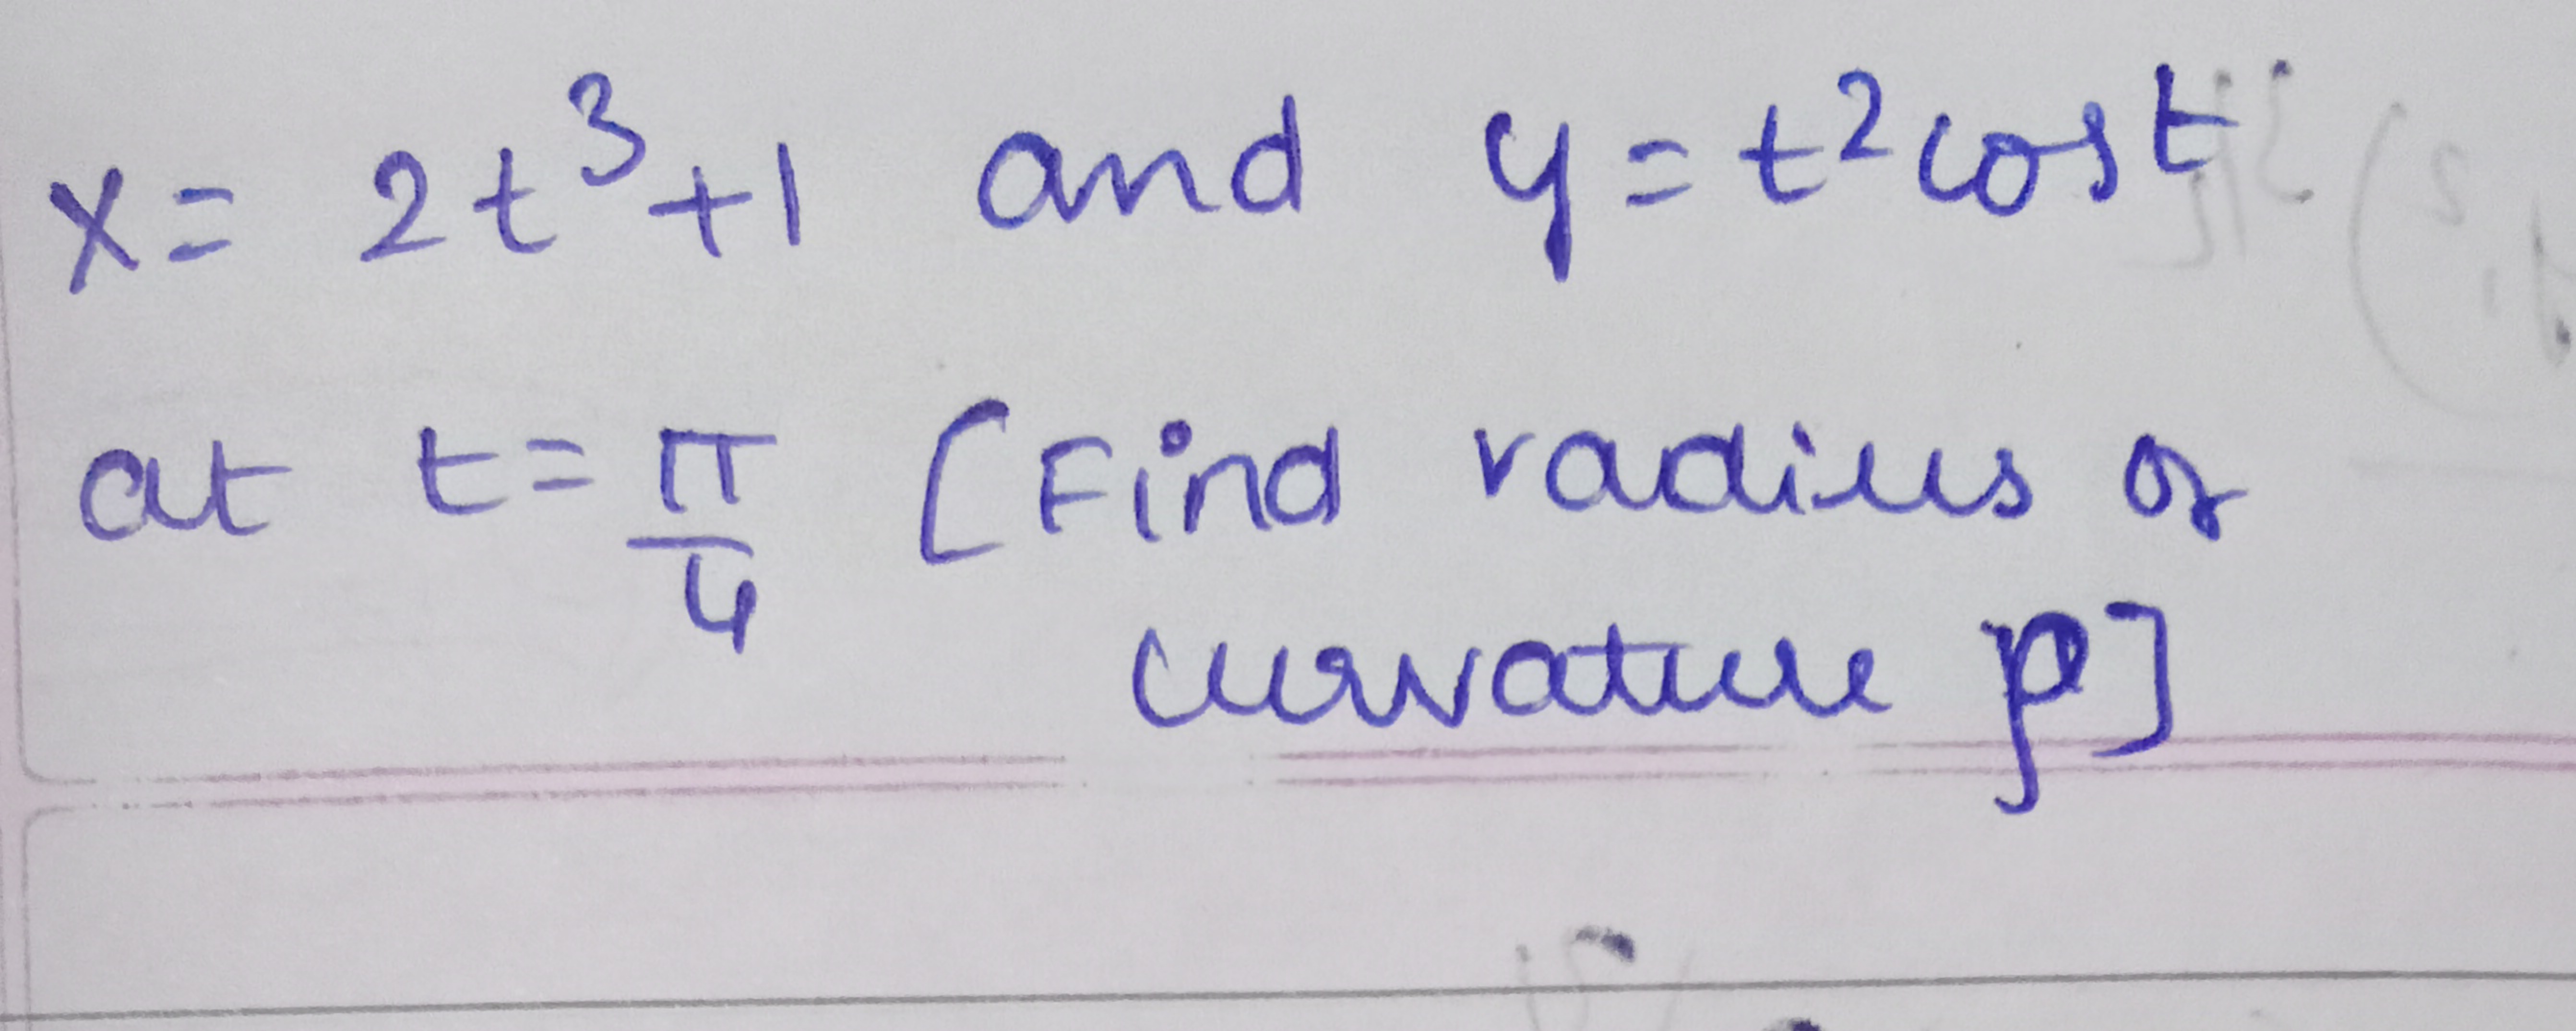 x = 2t³+1 and y = t² cost
at t = π/4 [Find radius of
curvature ρ]